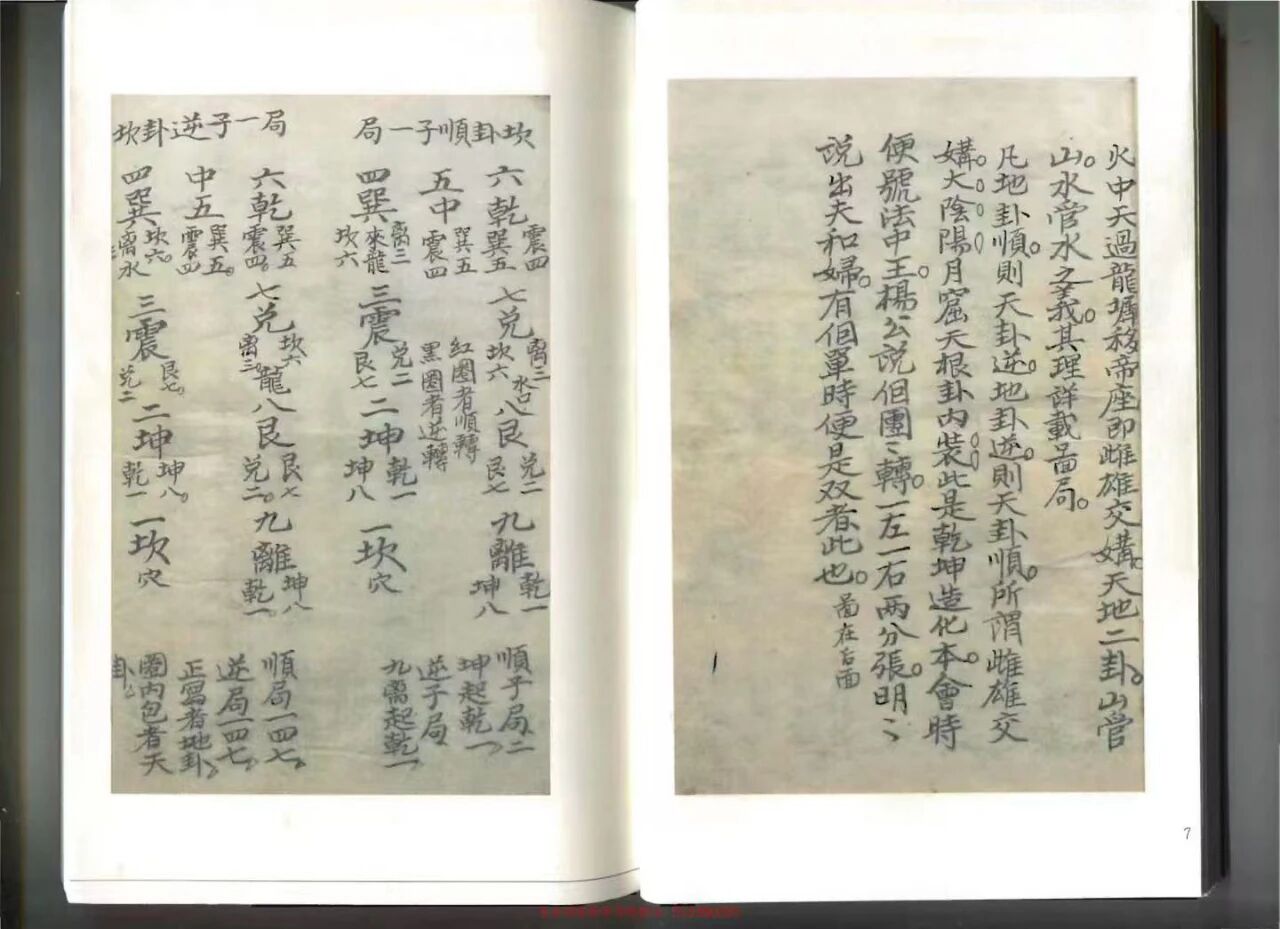 火中天過龍墀移帝座即雌雄交媾。天地二卦。山管
山。水管水之義。其理詳載啚局。
凡地卦順。則天卦逆。地卦逆。則天卦順。所謂雌雄交
媾。大陰陽月窟天根卦内裝此是乾坤造化本。會時
便號法中王。楊公説個團〻轉。一左一右兩分張。明〻
説出夫和婦。有個單時便是双者此也。啚在后面
坎卦順子一局
六乾 震四 巽五 七兑 離三 坎六 水口 八艮 兑二 艮七 九離 乾一 坤八
五中 巽五 震四
紅圈者順轉
黑圈者逆轉
四巽 離三 來龍 坎六 三震 兑二 艮七 二坤 乾一 坤八 一坎 穴
順子局二
坤起乾一
逆子局
九離起乾一
坎卦逆子一局
六乾 巽五 震四。 七兑 坎六 離三。 龍 八艮 艮七 兑二。 九離 坤八 乾一。
中五 巽五。 震四
四巽 坎六。 離三 水 三震 艮七。 兑二 二坤 坤八。 乾一 一坎 穴
順局一四七
逆局一四七
正寫者地卦
圈内包者天
卦
7